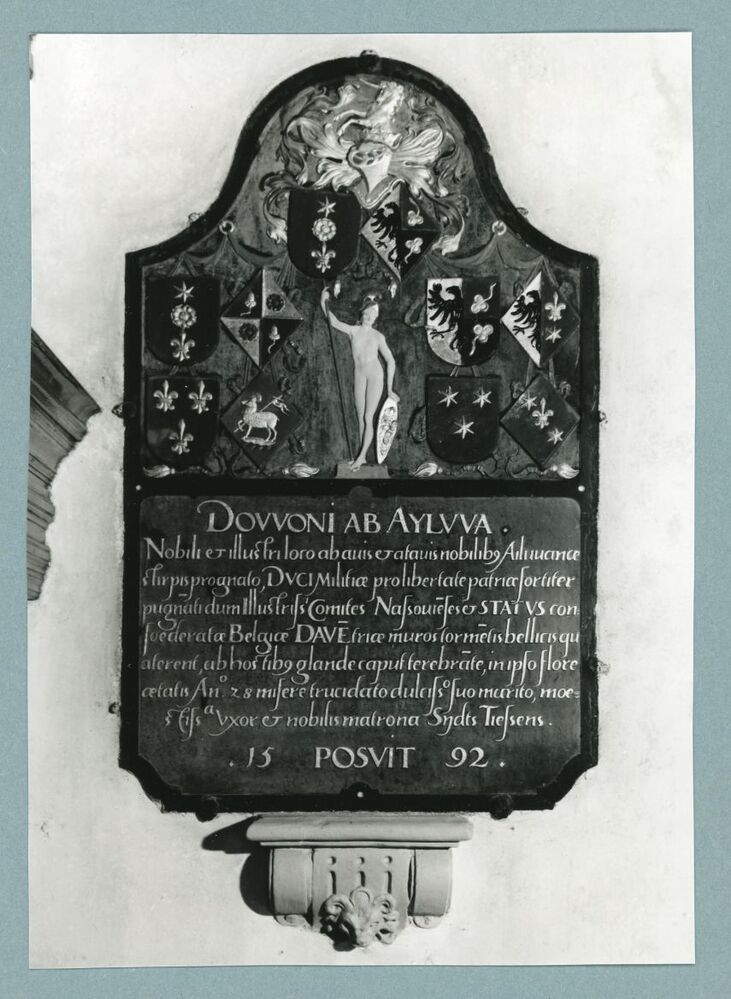 DOVVONI AB AYLVVA
Nobili et illustri loco ab auis et atauis nobilib9 Ailuuancæ
stirpis prognato, DVCI Militiæ pro libertate patriæ fortiter
pugnāti dum Illustriss Comites Nassouiēses et STATVS con-
foederatæ Belgicæ DAVĒtriæ muros tormētis bellicis qu
aterent, ab hostib9 glande caput terebrāte, in ipso flore
ætatis An.º 28 misere trucidato dulcissº suo marito, moe-
stissª vxor et nobilis matrona Sijdts Tiessens.
.15 POSVIT 92.